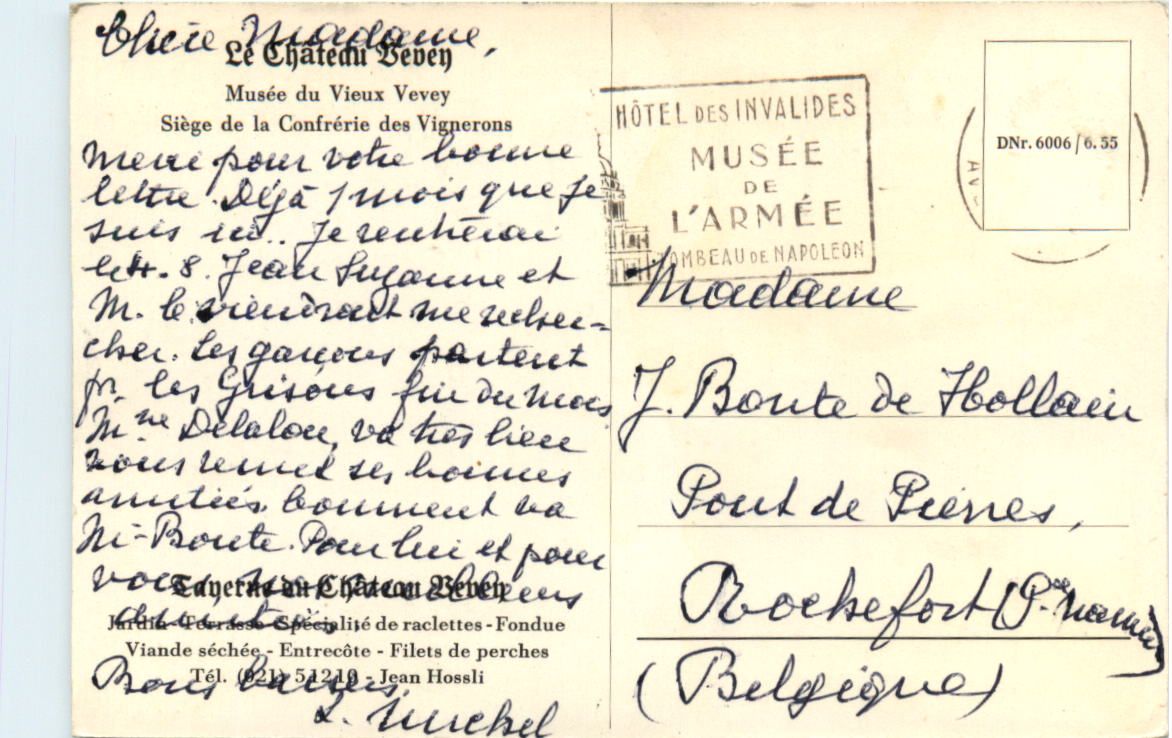 Chère Madame,
Le Château Vevey
Musée du Vieux Vevey
Siège de la Confrérie des Vignerons
Merci pour votre bonne
lettre. Déjà 1 mois que je
suis ici.. Je rentrerai
le 4. 8. Jean Suzanne et
M. le viendront me recher-
cher. Les garçons partent
pr. les Grisons fin du mois
Mme Delalou, va très bien
vous remet ses bonnes
amitiés. Comment va
Mr Bonte. Pour lui et pour
vous mes meilleurs
Taverne du Château Vevey
amitiés,
Jardin - Terrasse - Spécialité de raclettes - Fondue
Viande séchée - Entrecôte - Filets de perches
Tél. (021) 51210 - Jean Hossli
Bons baisers,
HÔTEL DES INVALIDES
MUSÉE
DE
L'ARMÉE
TOMBEAU DE NAPOLEON
DNr. 6006 / 6. 55
Madame
J. Bonte de Hollain
Pont de Pierres,
Rochefort (Pce Namur)
(Belgique)